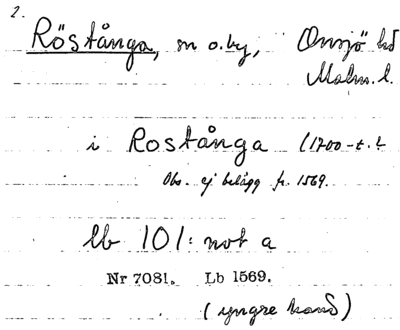 2.
Röstånga, sn o. by, Onsjö hd
Malm. l.
i Rostånga (1700-t.?
Obs. ej belägg fr. 1569.
lb 101: not a
Nr 7081. Lb 1569.
(yngre hand)